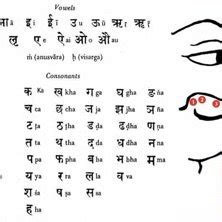 Vowels
आ ā इ i ई ī उ u ऊ ū ऋ ṛ ॠ ṝ
लृ ḷ ए e ऐ ai ओ o औ au
ṁ (anusvāra) ḥ (visarga)
Consonants
क ka ख kha ग ga घ gha ङ ṅa
च ca छ cha ज ja झ jha ञ ña
ट ṭa ठ ṭha ड ḍa ढ ḍha ण ṇa
त ta थ tha द da ध dha न na
प pa फ pha ब ba भ bha म ma
य ya र ra ल la व va
श śa ष ṣa स sa
ह ha
1 2 3